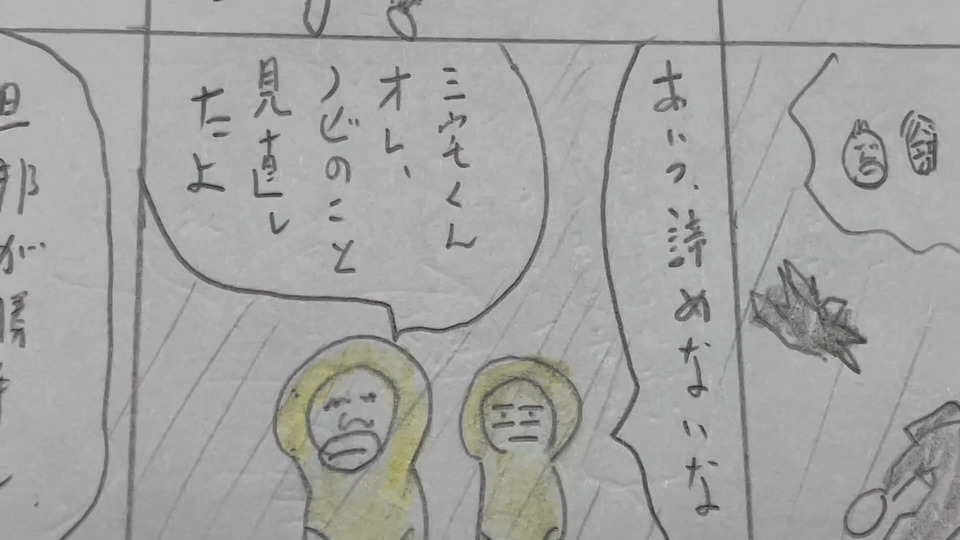 あいつ、諦めないな
三宅くん
オレ、
ノビのこと
見直し
たよ
旦那が勝